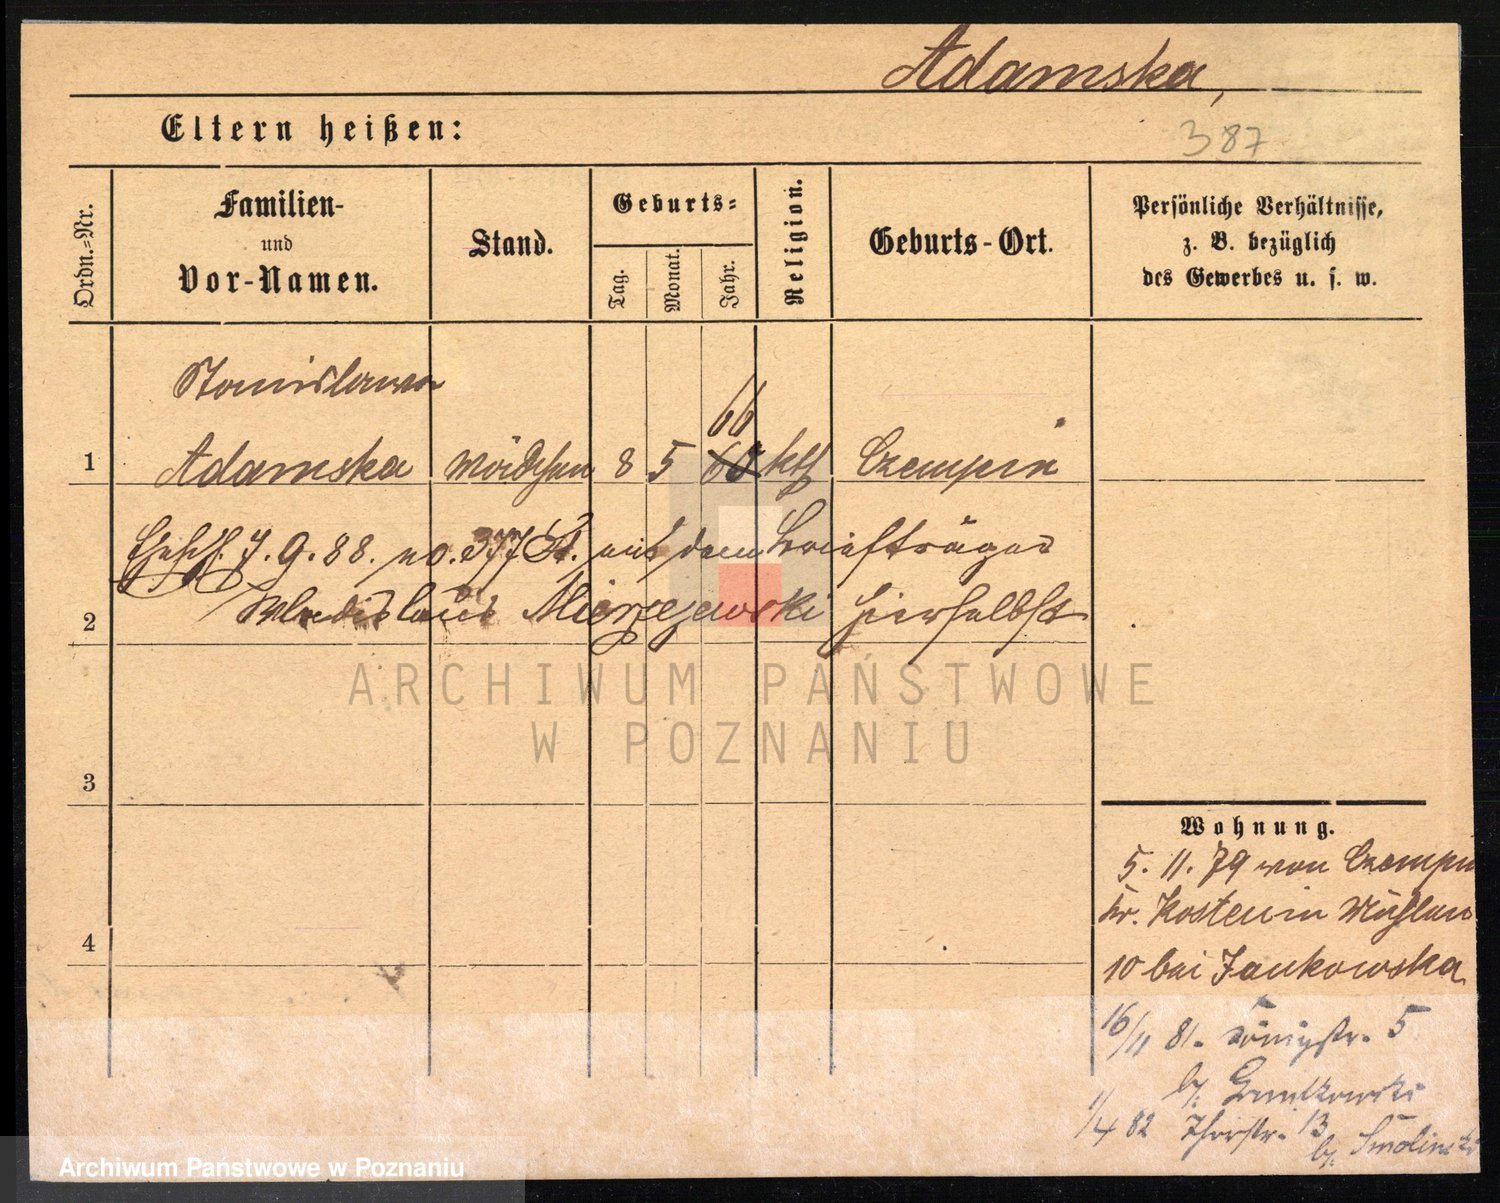 Adamska,
Eltern heißen:
387
Ordn.=Nr.
Familien-
und
Vor-Namen.
Stand.
Geburts=
Tag.
Monat.
Jahr.
Religion.
Geburts-Ort.
Persönliche Verhältnisse,
z. B. bezüglich
des Gewerbes u. s. w.
Stanislawa
66
1 Adamska Mädchen 8 5 60 kth Czempin
7. 9. 88. no. 377 St. mit dem Briefträger
2 Wladislaus Mierzejewski hierselbst
ARCHIWUM PAŃSTWOWE
W POZNANIU
3
Wohnung.
5. 11. 79 von Czempin
Kr. Kosten in Mühlen
4
10 bei Jankowska
16/11 81. Königstr. 5
b/
1/4 82 Thorstr. 13
b/ Smolinski
Archiwum Państwowe w Poznaniu